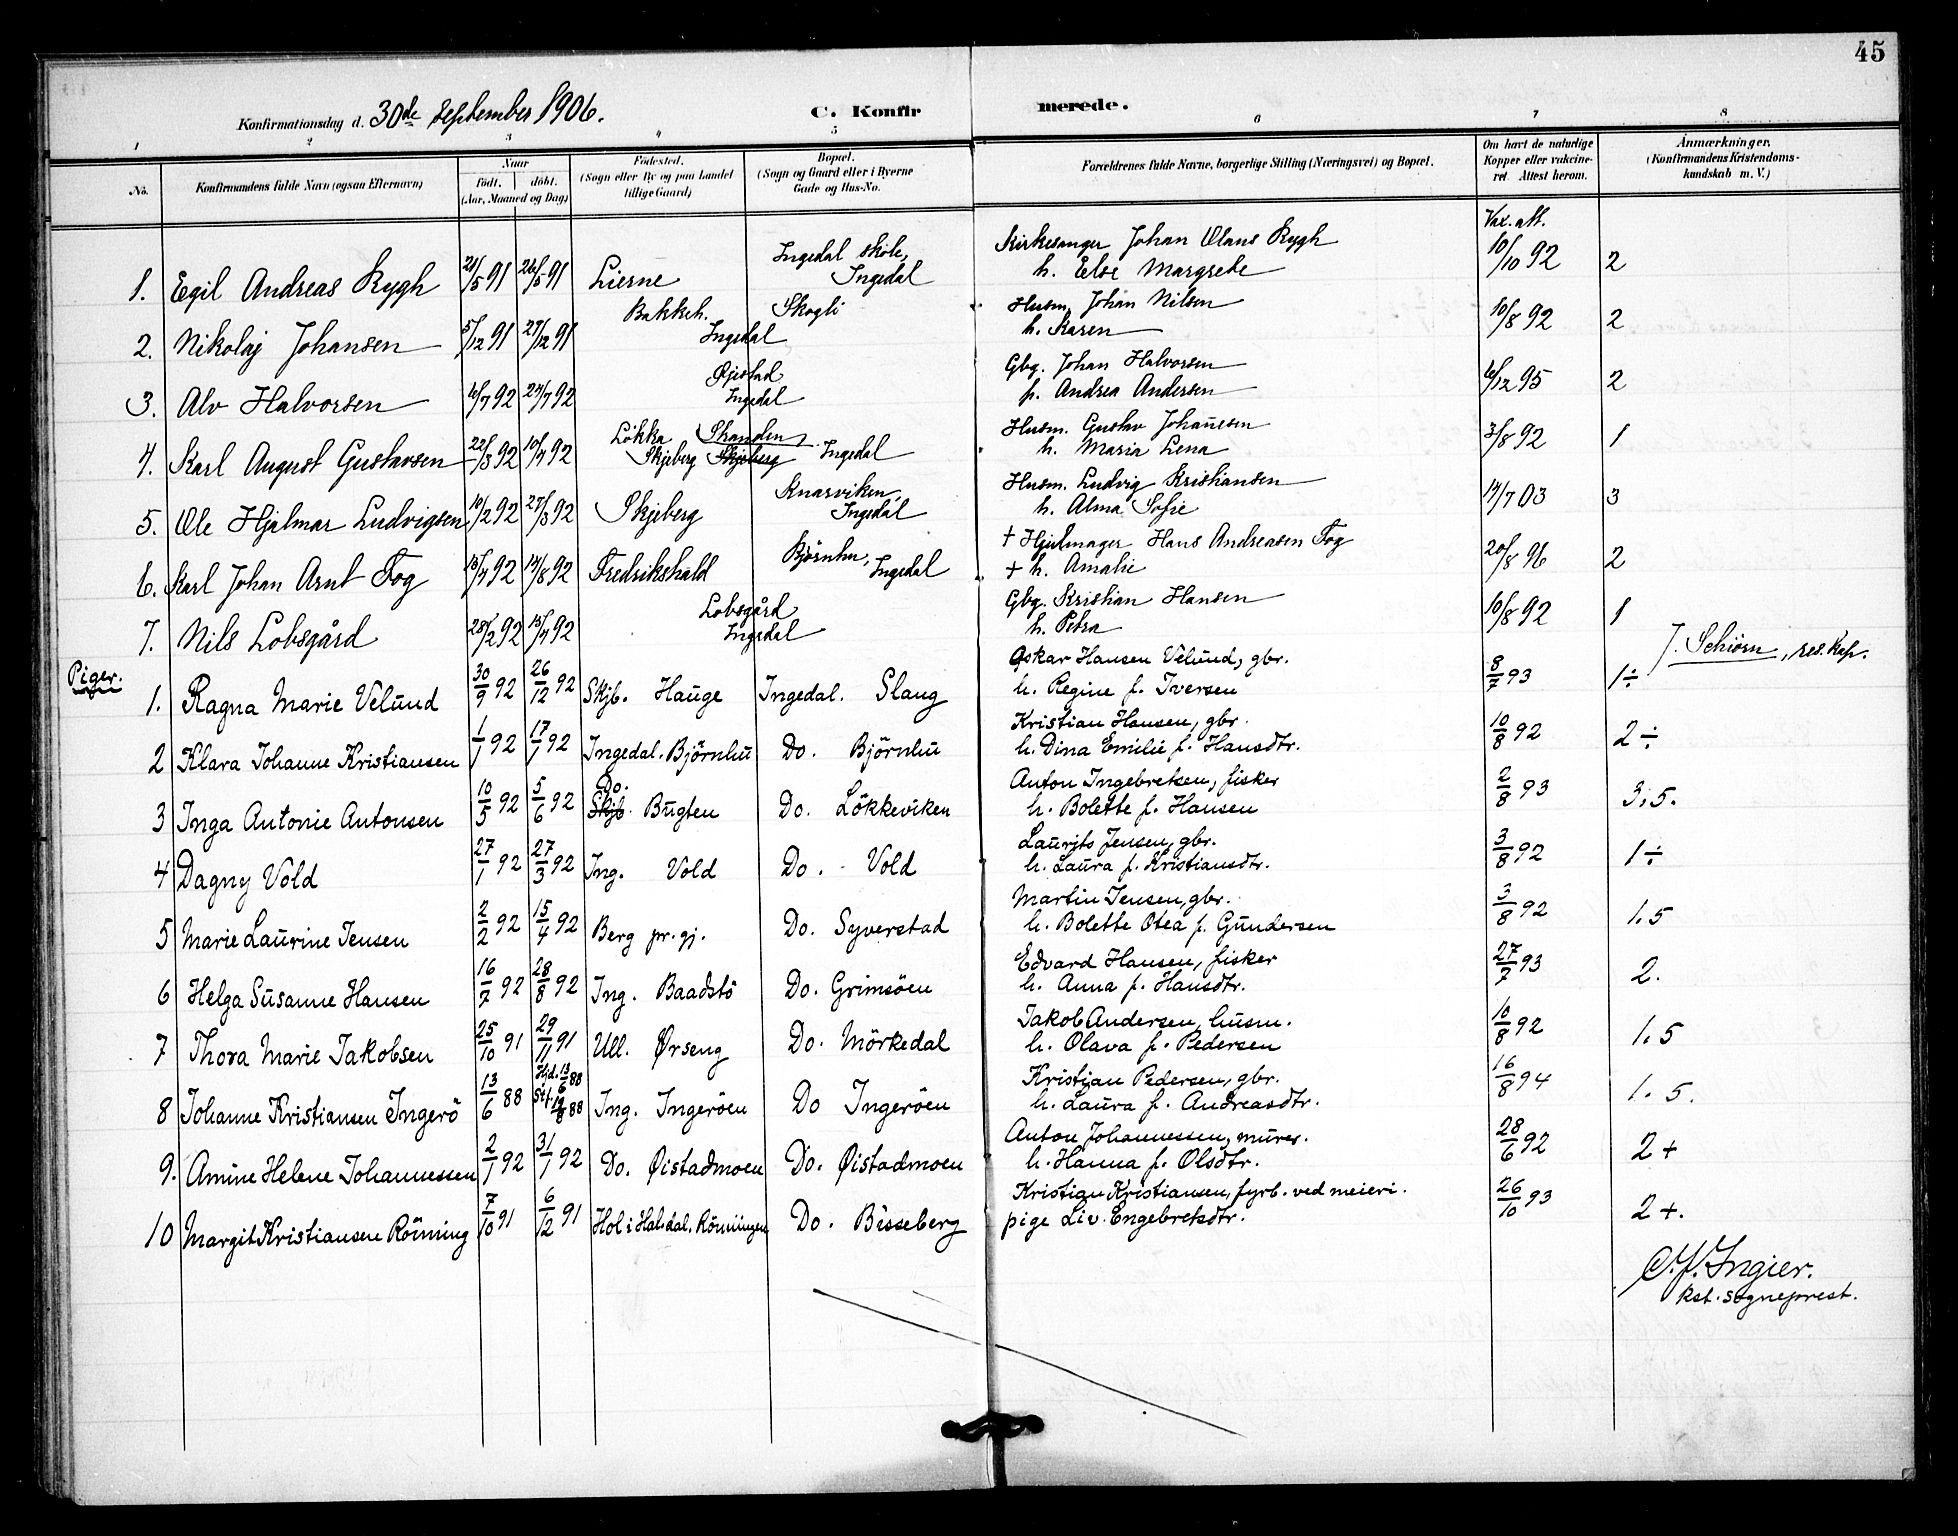 45
Konfirmationsdag d. 30de september 1906.
C. Konfirmerede.
1 2 3 4 5 6 7 8
No.
Konfirmandens fulde Navn (ogsaa Efternavn)
Naar
født. døbt.
(Aar, Maaned og Dag)
Fødested.
(Sogn eller By og paa Landet
tillige Gaard)
Bopæl.
(Sogn og Gaard eller i Byerne
Gade og Hus-No.
Forældrenes fulde Navne, borgerlige Stilling (Næringsvei) og Bopæl.
Om havt de naturlige
Kopper eller vakcine-
ret. Attest herom.
Anmærkninger.
(Konfirmandens Kristendoms-
kundskab m. V.)
Vax. att.
1. Egil Andreas Rygh 21/5 91 26/5 91 Lierne Ingedal skole, Ingedal Kirkesanger Johan Olaus Rygh h. Else Margrete 10/10 92 2
2. Nikolaj Johansen 5/12 91 27/12 91 Bakkeh. Skogli Ingedal Husm. Johan Nilsen h. Karen 10/8 92 2
3. Alv Halvorsen 6/7 92 24/7 92 Øjestad Ingedal Gbg. Johan Halvorsen f. Andrea Andersen 6/12 95 2
4. Karl August Gustavsen 22/3 92 10/4 92 Løkka Skjeberg Skjeberg Ingedal Husm. Gustav Johansen h. Maria Lena 3/8 92 1
5. Ole Hjalmar Ludvigsen 10/2 92 27/3 92 Skjeberg Knarviken, Ingedal Husm. Ludvig Kristiansen h. Alma Sofie 14/7 03 3
6. Karl Johan Arnt Fog 15/4 92 14/8 92 Fredrikshald Bjørnhu, Ingedal + Hjulmager Hans Andreasen Fog + h. Amalie 20/8 96 2
7. Nils Lobsgård 28/2 92 18/4 92 Lobsgård Ingedal Gbg. Kristian Hansen h. Petra 10/8 92 1
J. Schiørn, res. kap.
Piger.
1. Ragna Marie Velund 30/9 92 26/12 92 Skjb. Hauge Ingedal. Slaug Oskar Hansen Velund, gbr. h. Regine f. Iversen 8/7 93 1÷
2 Klara Johanne Kristiansen 1/1 92 17/1 92 Ingedal. Björnhu Do. Björnhu Kristian Hansen, gbr. h. Dina Emilie f. Hansdtr. 10/8 92 2÷
3 Inga Antonie Antonsen 10/5 92 5/6 92 Do. Skjb. Bugten Do. Lökkeviken Anton Ingebretsen, fisker h. Bolette f. Hansen 2/8 93 3,5.
4 Dagny Vold 27/1 92 27/3 92 Ing. Vold Do. Vold Laurits Jensen, gbr. h. Laura f. Kristiansdtr. 3/8 92 1÷
5 Marie Laurine Jensen 2/2 92 15/4 92 Berg pr.gj. Do. Syverstad Martin Jensen, gbr. h. Bolette Otea f. Gundersen 3/8 92 1.5
6 Helga Susanne Hansen 16/7 92 28/8 92 Ing. Baadstö Do. Grimsöen Edvard Hansen, fisker h. Anna f. Hansdtr. 27/7 93 2.
7 Thora Marie Jakobsen 25/10 91 29/11 91 Ull. Ørseng Do. Mörkedal Jakob Andersen, husm. h. Olava f. Pedersen 10/8 92 1.5
8 Johanne Kristiansen Ingerö 13/6 88 Hjd. 13/6 88 St. 19/8 88 Ing. Ingeröen Do Ingeröen Kristian Pedersen, gbr. h. Laura f. Andreasdtr. 16/8 94 1.5.
9. Amine Helene Johannessen 2/1 92 31/1 92 Do. Øistadmoen Do. Øistadmoen Anton Johannessen, murer. h. Hanna f. Olsdtr. 28/6 92 2+
10 Margit Kristiansen Rönning 7/10 91 6/12 91 Hol i Hal.dal. Rönningen Do. Bisseberg Kristian Kristiansen, fyrb. ved meieri. pige Liv Engebretsdtr. 26/10 93 2+.
C.F. Ingier.
kst. sogneprest.